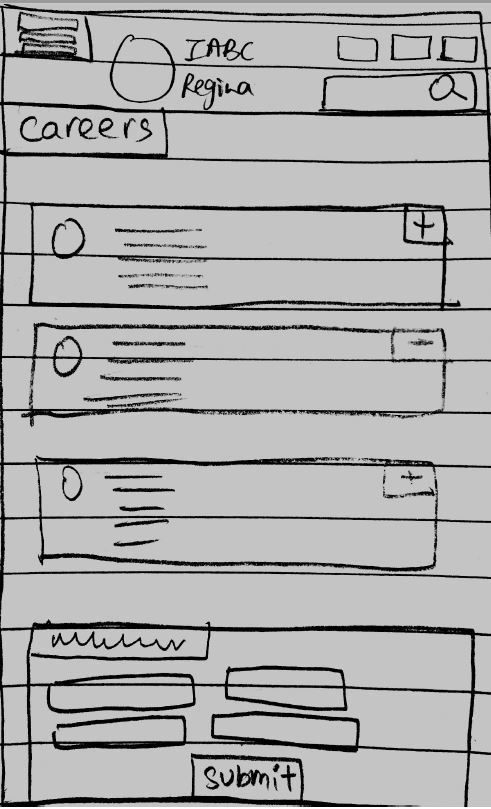 IABC
Regina
Careers
+
+
+
Submit